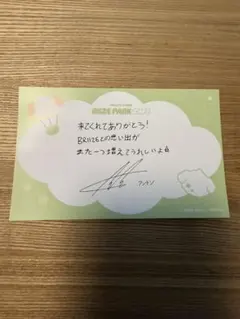 RIIZE PARK
来てくれてありがとう!
BRIIZEとの思い出が
また一つ増えてうれしいよ
アントン